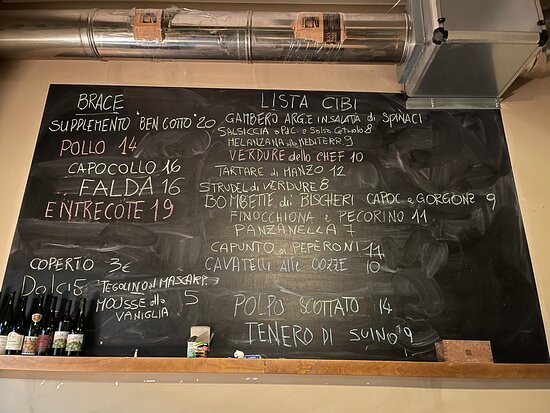 BRACE
SUPPLEMENTO "BEN COTTO" 20
POLLO 14
CAPOCOLLO 16
FALDA 16
ENTRECOTE 19
COPERTO 3€
Dolci 5
TEGOLINO al MASCARP.
MOUSSE alla 5
VANIGLIA
LISTA CIBI
GAMBERO ARG. E INSALATA di SPINACI
SALSICCIA a P.d.C e Salsa 8
MELANZANA alla MEDITERR 9
VERDURE dello CHEF 10
TARTARE di MANZO 12
STRUDEL di VERDURE 8
BOMBETTE di BISCHERI CAPOC e GORGONZ 9
FINOCCHIONA e PECORINO 11
PANZANELLA 7
CAPUNTO ai PEPERONI 11
CAVATELLI alle COZZE 10
POLPO SCOTTATO 14
TENERO DI SUINO 19